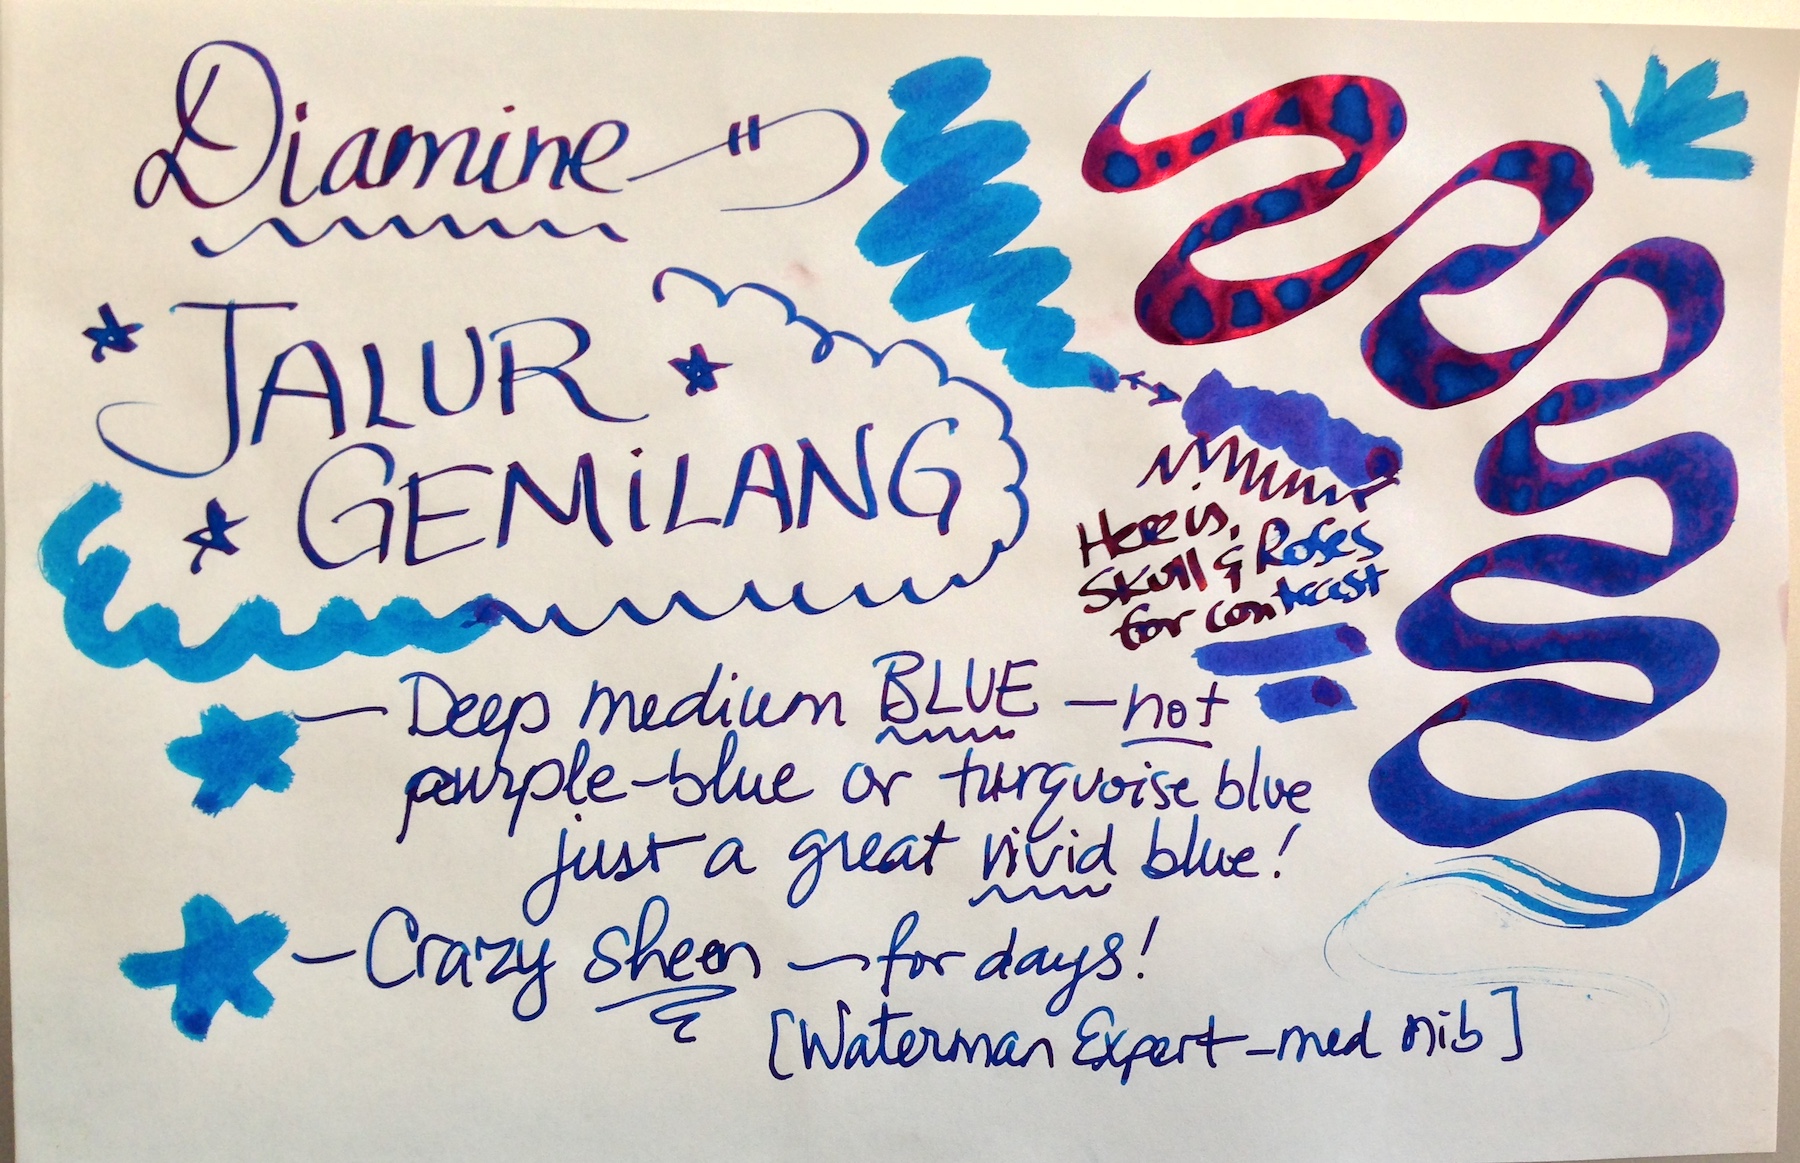 Diamine
JALUR
GEMiLANG
Here is,
Skull & Roses
for contrast
Deep medium BLUE - not
purple-blue or turquoise blue
just a great vivid blue!
- Crazy sheen - for days!
[Waterman Expert - med nib]